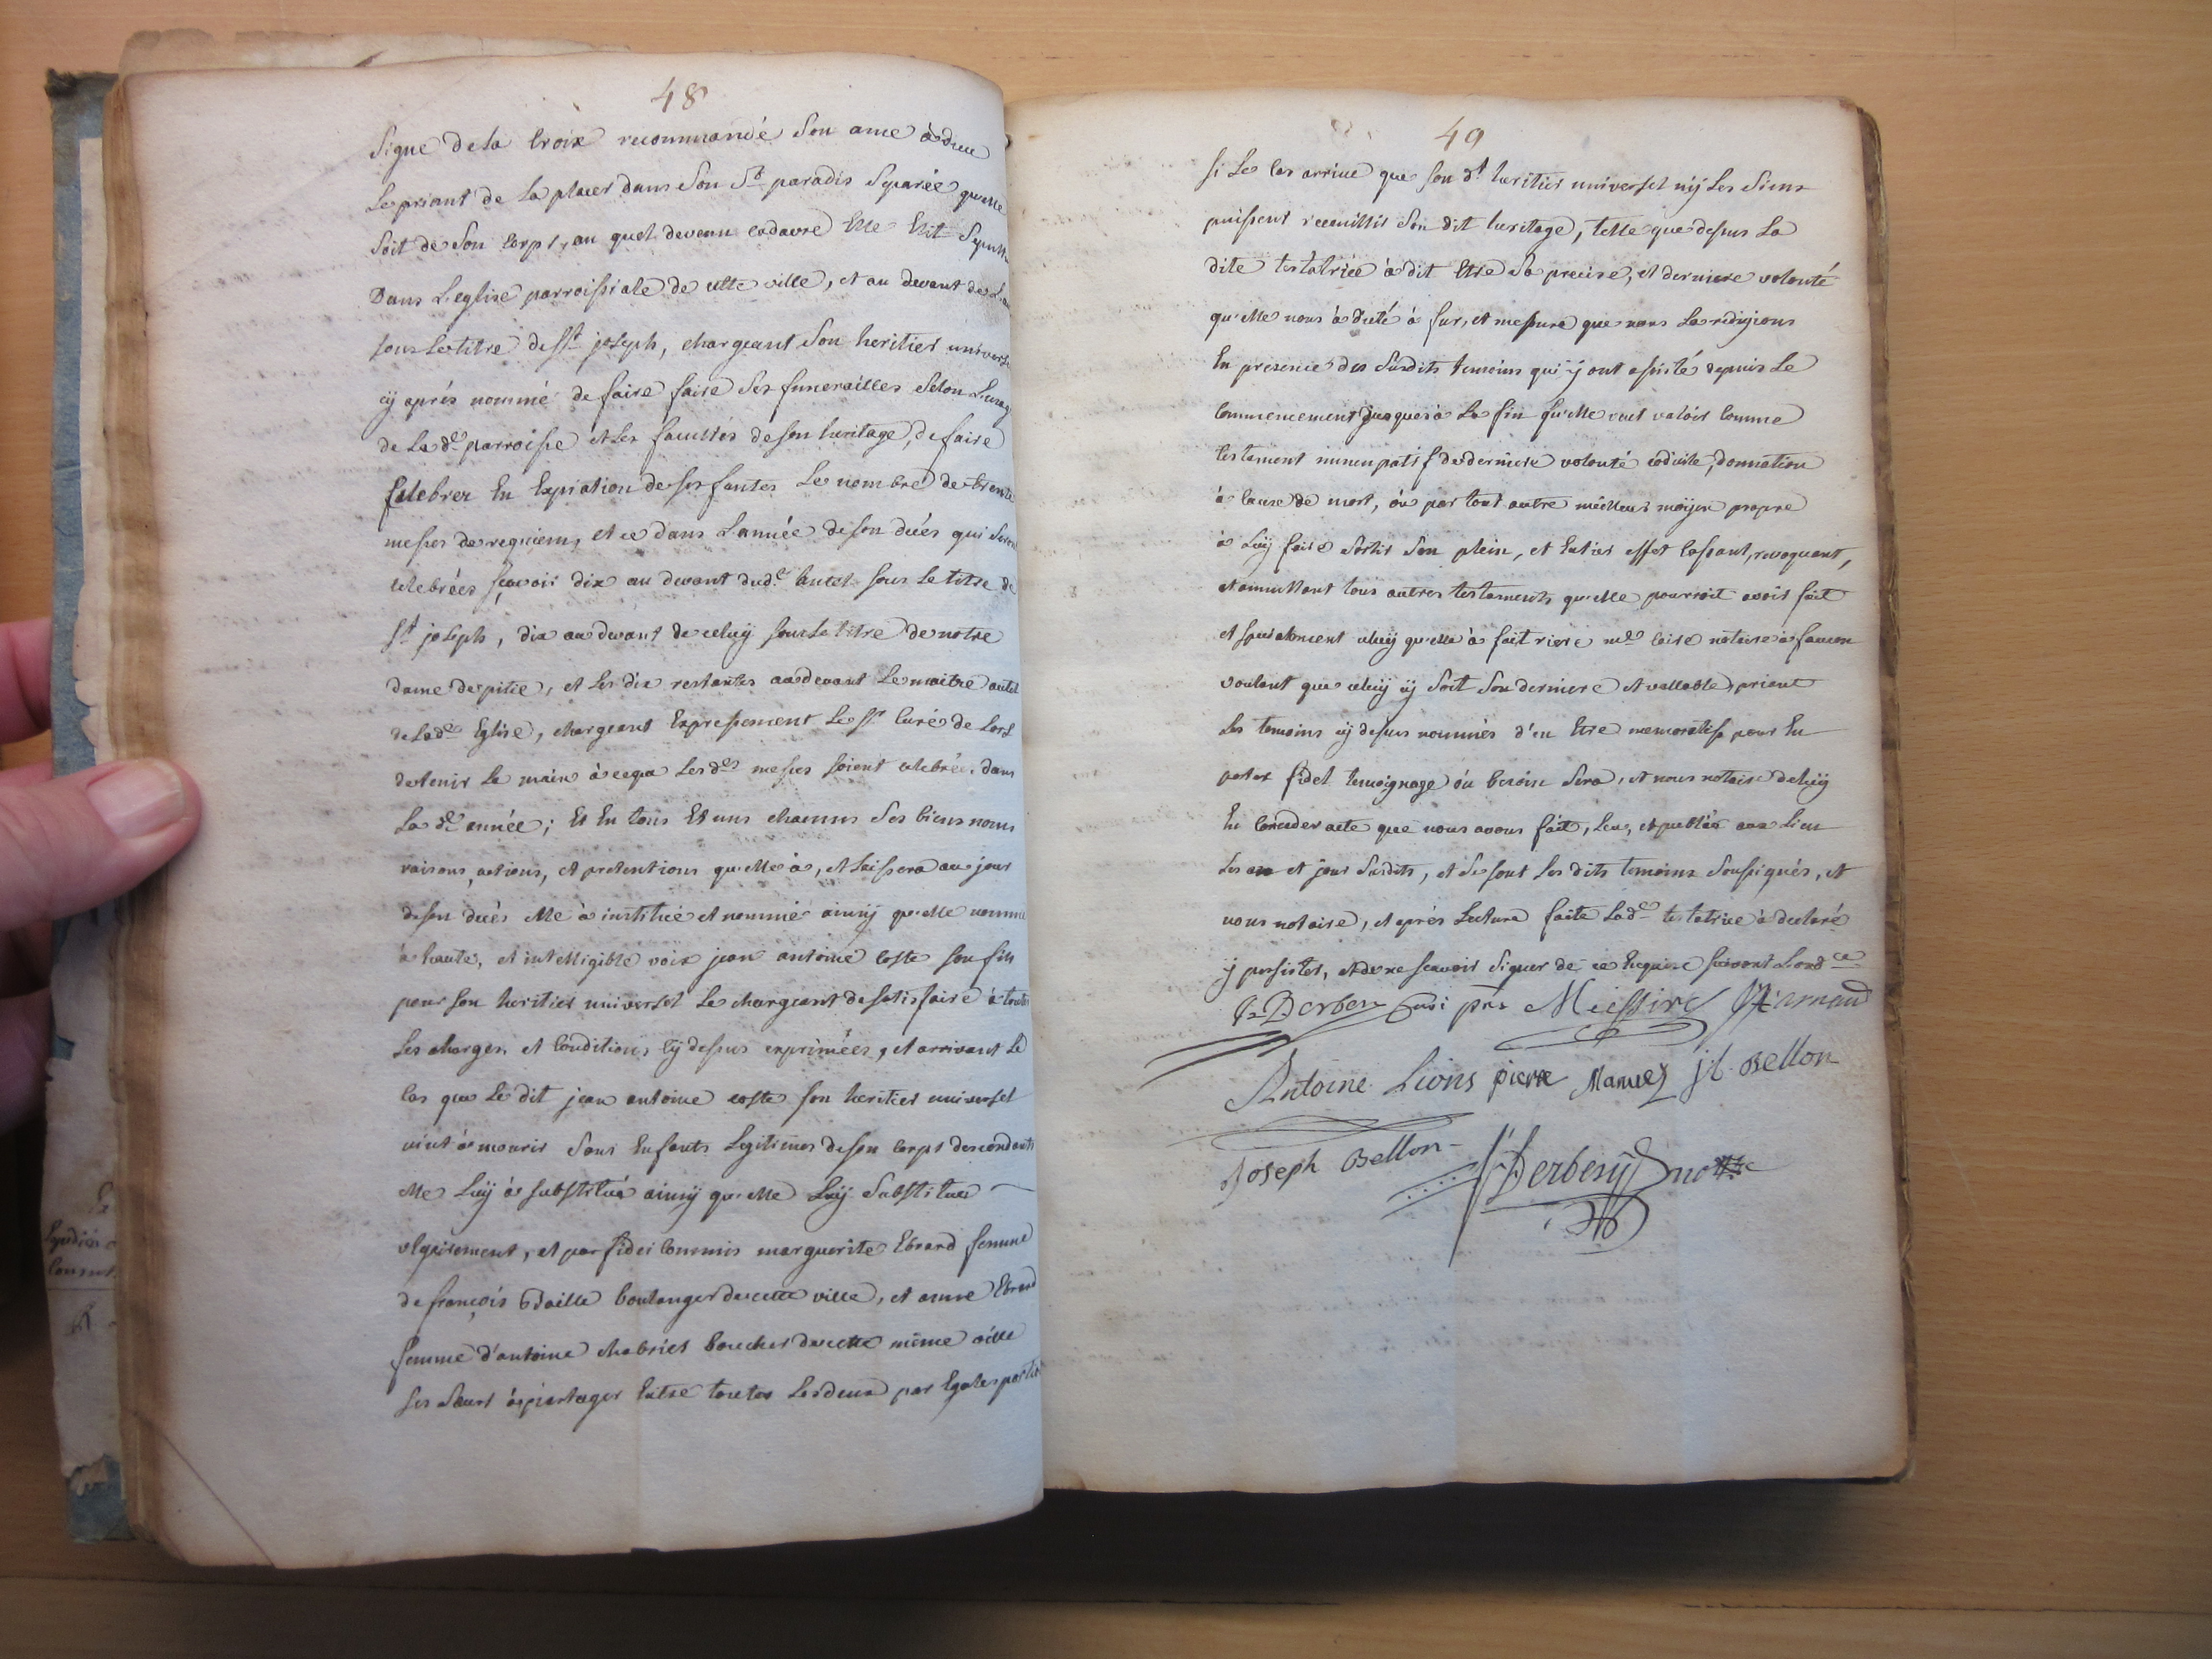 48
Signe de la Croix recommandé Son ame à dieu
Le priant de La placer dans Son St paradis Separée qu'elle
Soit de Son Corps, au quel devenu cadavre Elle Elit Sepult
Dans L'eglise parroissiale de cette ville, et au devant de L'au
sous Le titre de St joseph, chargeant Son heritier univers
cy aprés nommé de faire faire Ses funerailles Selon L'usag
de La de parroisse et Les facultés de son heritage, de faire
Celebrer En Expiation de ses fautes Le nombre de trente
messes de requiem, et ce dans L'année de son décés qui Seron
celebrées sçavoir dix au devant dud. autel sous Le titre de
St joseph, dix au devant de celuy sous Le titre de notre
dame de pitié, et Les dix restantes au devant Le maitre autel
de Lade Eglise, chargeant Expressement Le Sr Curé de Lors
de tenir La main à ce que Les des messes soient celebrées dans
La de année; Et En tous Et uns chacuns Ses biens noms
raisons, actions, et pretentions qu'elle à, et Laissera au jour
de son decés elle à institué et nommé ainsy qu'elle nomme
à haute, et intelligible voix jean antoine Coste son fils
pour son heritier universel Le chargeant de satisfaire à toutes
Les charges, et Conditions cy dessus exprimées, et arrivant Le
Cas que Le dit jean antoine coste son heritier universel
vint à mourir Sans Enfants Legitimes de son Corps descendants
elle Luy à substitué ainsy qu'elle Luy Substitue
vlgairement, et par fidei Commis marguerite Ebrard femme
de françois Daille boulanger de cette ville, et anne Ebrard
femme d'antoine chabries boucher de cette même ville
ses Sœurs à partager Entre toutes Les deux par Egales portio
49
Si Le Cas arrive que son dt heritier universel ny Les Siens
puissent recueillir Son dit heritage, telle que dessus La
dite testatrice à dit Etre Sa precise, et derniere volonté
qu'elle nous à dicté à fur, et mesure que nous La redigions
En presence des Susdits temoins qui y ont assisté depuis Le
Commencement jusques à La fin qu'elle veut valoir Comme
testament nuncupatif de derniere volonté codicile, donnation
à Cause de mort, ôu par tout autre meilleur moyen propre
à Luy faire Sortir Son plein, et Entier effet Cassant, revoquant,
et annullant tous autres testaments qu'elle pourroit avoir fait
et specialement celuy qu'elle à fait riere me notaire à faucon
voulant que celuy cy Soit Son derniere et vallable, priant
Les temoins cy dessus nommés d'en Etre memoratifs pour En
porter fidel temoignage ôu besoin Sera, et nous notaire de Luy
En Conceder acte que nous avons fait, Leu, et publié aux Lieu
Les an et jour Susdits, et Se sont Les dits temoins Soussignés, et
nous notaire, et aprés Lecture faite Lade testatrice à declaré
y persister, et de ne sçavoir Signer de ce Enquise suivant L'ordce
Derbez Miessire Arnaud
Antoine Lions pierre Manuel j. Bellon
Joseph Bellon Derbesy nore